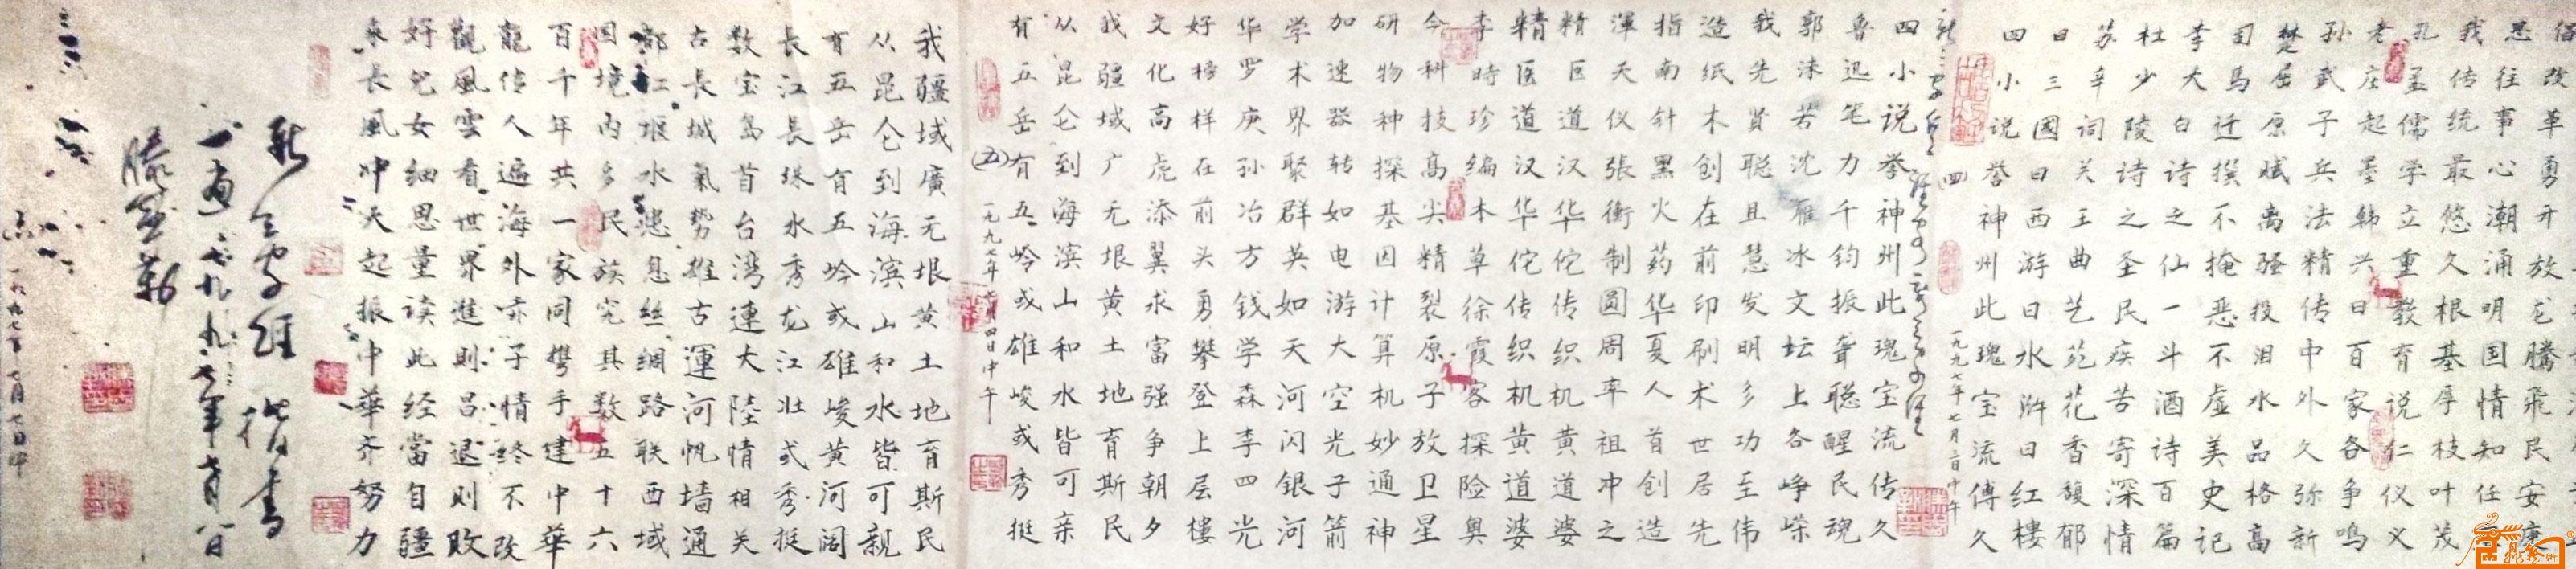 改革勇开放龙腾飞民安康
思往事心潮涌明国情知任重
我传统最悠久根基厚枝叶茂
孔孟儒学立重教有说仁仪义
老庄起墨韩兴日百家各争鸣
孙武子兵法精传中外久弥新
楚屈原赋离骚投泪水品格高
司马迁撰不掩恶不虚美史记
李大白诗之仙一斗酒诗百篇
杜少陵诗之圣民疾苦寄深情
苏辛词关王曲艺苑花香馥郁
曰三國曰西游曰水浒曰红樓
四小说誉神州此瑰宝流傅久
(四)
一九九七年七月二日中午
四小说誉神州此瑰宝流传久
鲁迅笔力千钧振聋聪醒民魂
郭沫若沈雁冰文坛上各峥嵘
我先贤聪且慧发明多功至伟
造纸术创在前印刷术世居先
指南针黑火药华夏人首创造
渾天仪張衡制圆周率祖冲之
精医道汉华佗传织机黄道婆
精医道汉华佗传织机黄道婆
李時珍编木草徐霞客探险奥
今科技高尖精裂原子放卫星
研物种探基因计算机妙通神
加速器转如电游大空光子箭
学术界聚群英如天河闪银河
华罗庚孙冶方钱学森李四光
好榜样在前头勇攀登上层樓
文化高虎添翼求富强争朝夕
我疆域广无垠黄土地育斯民
从昆仑到海滨山和水皆可亲
有五岳有五岭或雄峻或秀挺
(五)
一九九七年七月四日中午
我疆域廣无垠黄土地育斯民
从昆仑到海滨山和水皆可親
有五岳有五岭或雄峻黄河阔
長江長珠水秀龙江壮或秀挺
数宝岛首台湾連大陸情相关
古長城氣势雄古運河帆墙通
都江堰水患息丝绸路联西域
国境内多民族究其数五十六
百千年共一家同攜手建中華
龍传人遍海外赤子情终不改
觀風雲看世界進則昌退则敗
好兒女细思量读此经當自疆
乘長風冲天起振中華齐努力
新三字经 楷書
一九九七年七月七日中